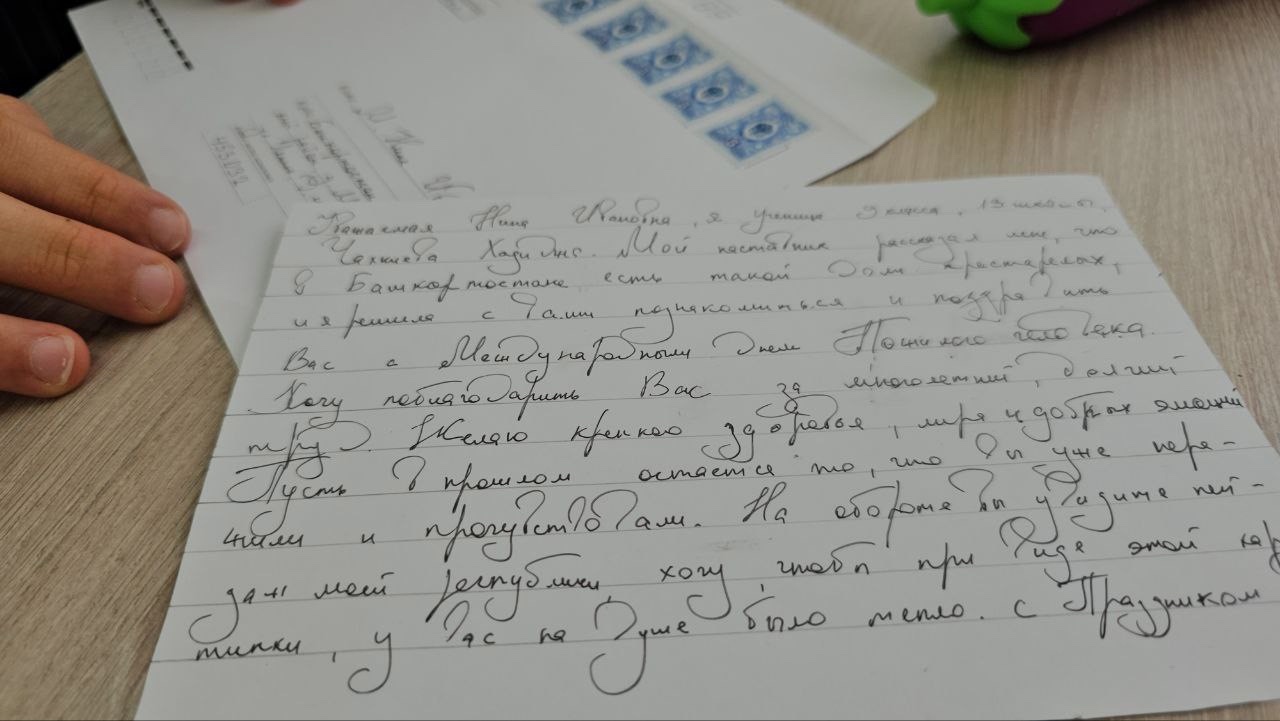 453292
Уважаемая Нина Ивановна, я ученица 9 класса, 13 школы,
Хадижа. Мой наставник рассказал мне, что
в Башкортостане есть такой Дом престарелых,
и я решила с Вами познакомиться и поздравить
Вас с Международным Днем Пожилого человека.
Хочу поблагодарить Вас за многолетний, долгий
труд. Желаю крепкого здоровья, мира и добрых эмоций
Пусть в прошлом остается то, что Вы уже пере-
жили и прочувствовали. На обороте Вы увидите пей-
заж моей республики, хочу, чтобы при виде этой кар
тинки, у Вас на душе было тепло. с Праздником